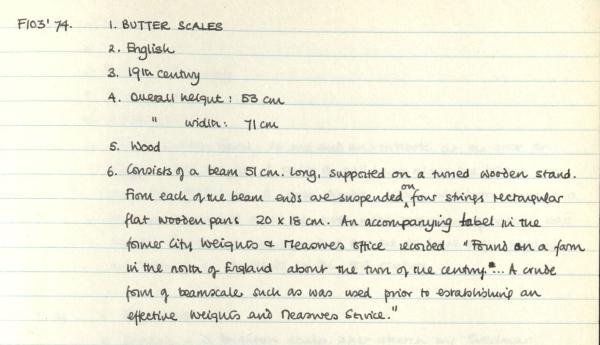 F103'74. 1. BUTTER SCALES
2. English
3. 19th century
4. Overall height: 53 cm
" width: 71 cm
5. Wood
6. Consists of a beam 51 cm. long, supported on a turned wooden stand.
From each of the beam ends are suspended on four strings rectangular
flat wooden pans 20 x 18 cm. An accompanying label in the
former City Weights & Measures office recorded "Found on a farm
in the north of England about the turn of the century."... A crude
form of beamscale, such as was used prior to establishing an
effective Weights and Measures Service."